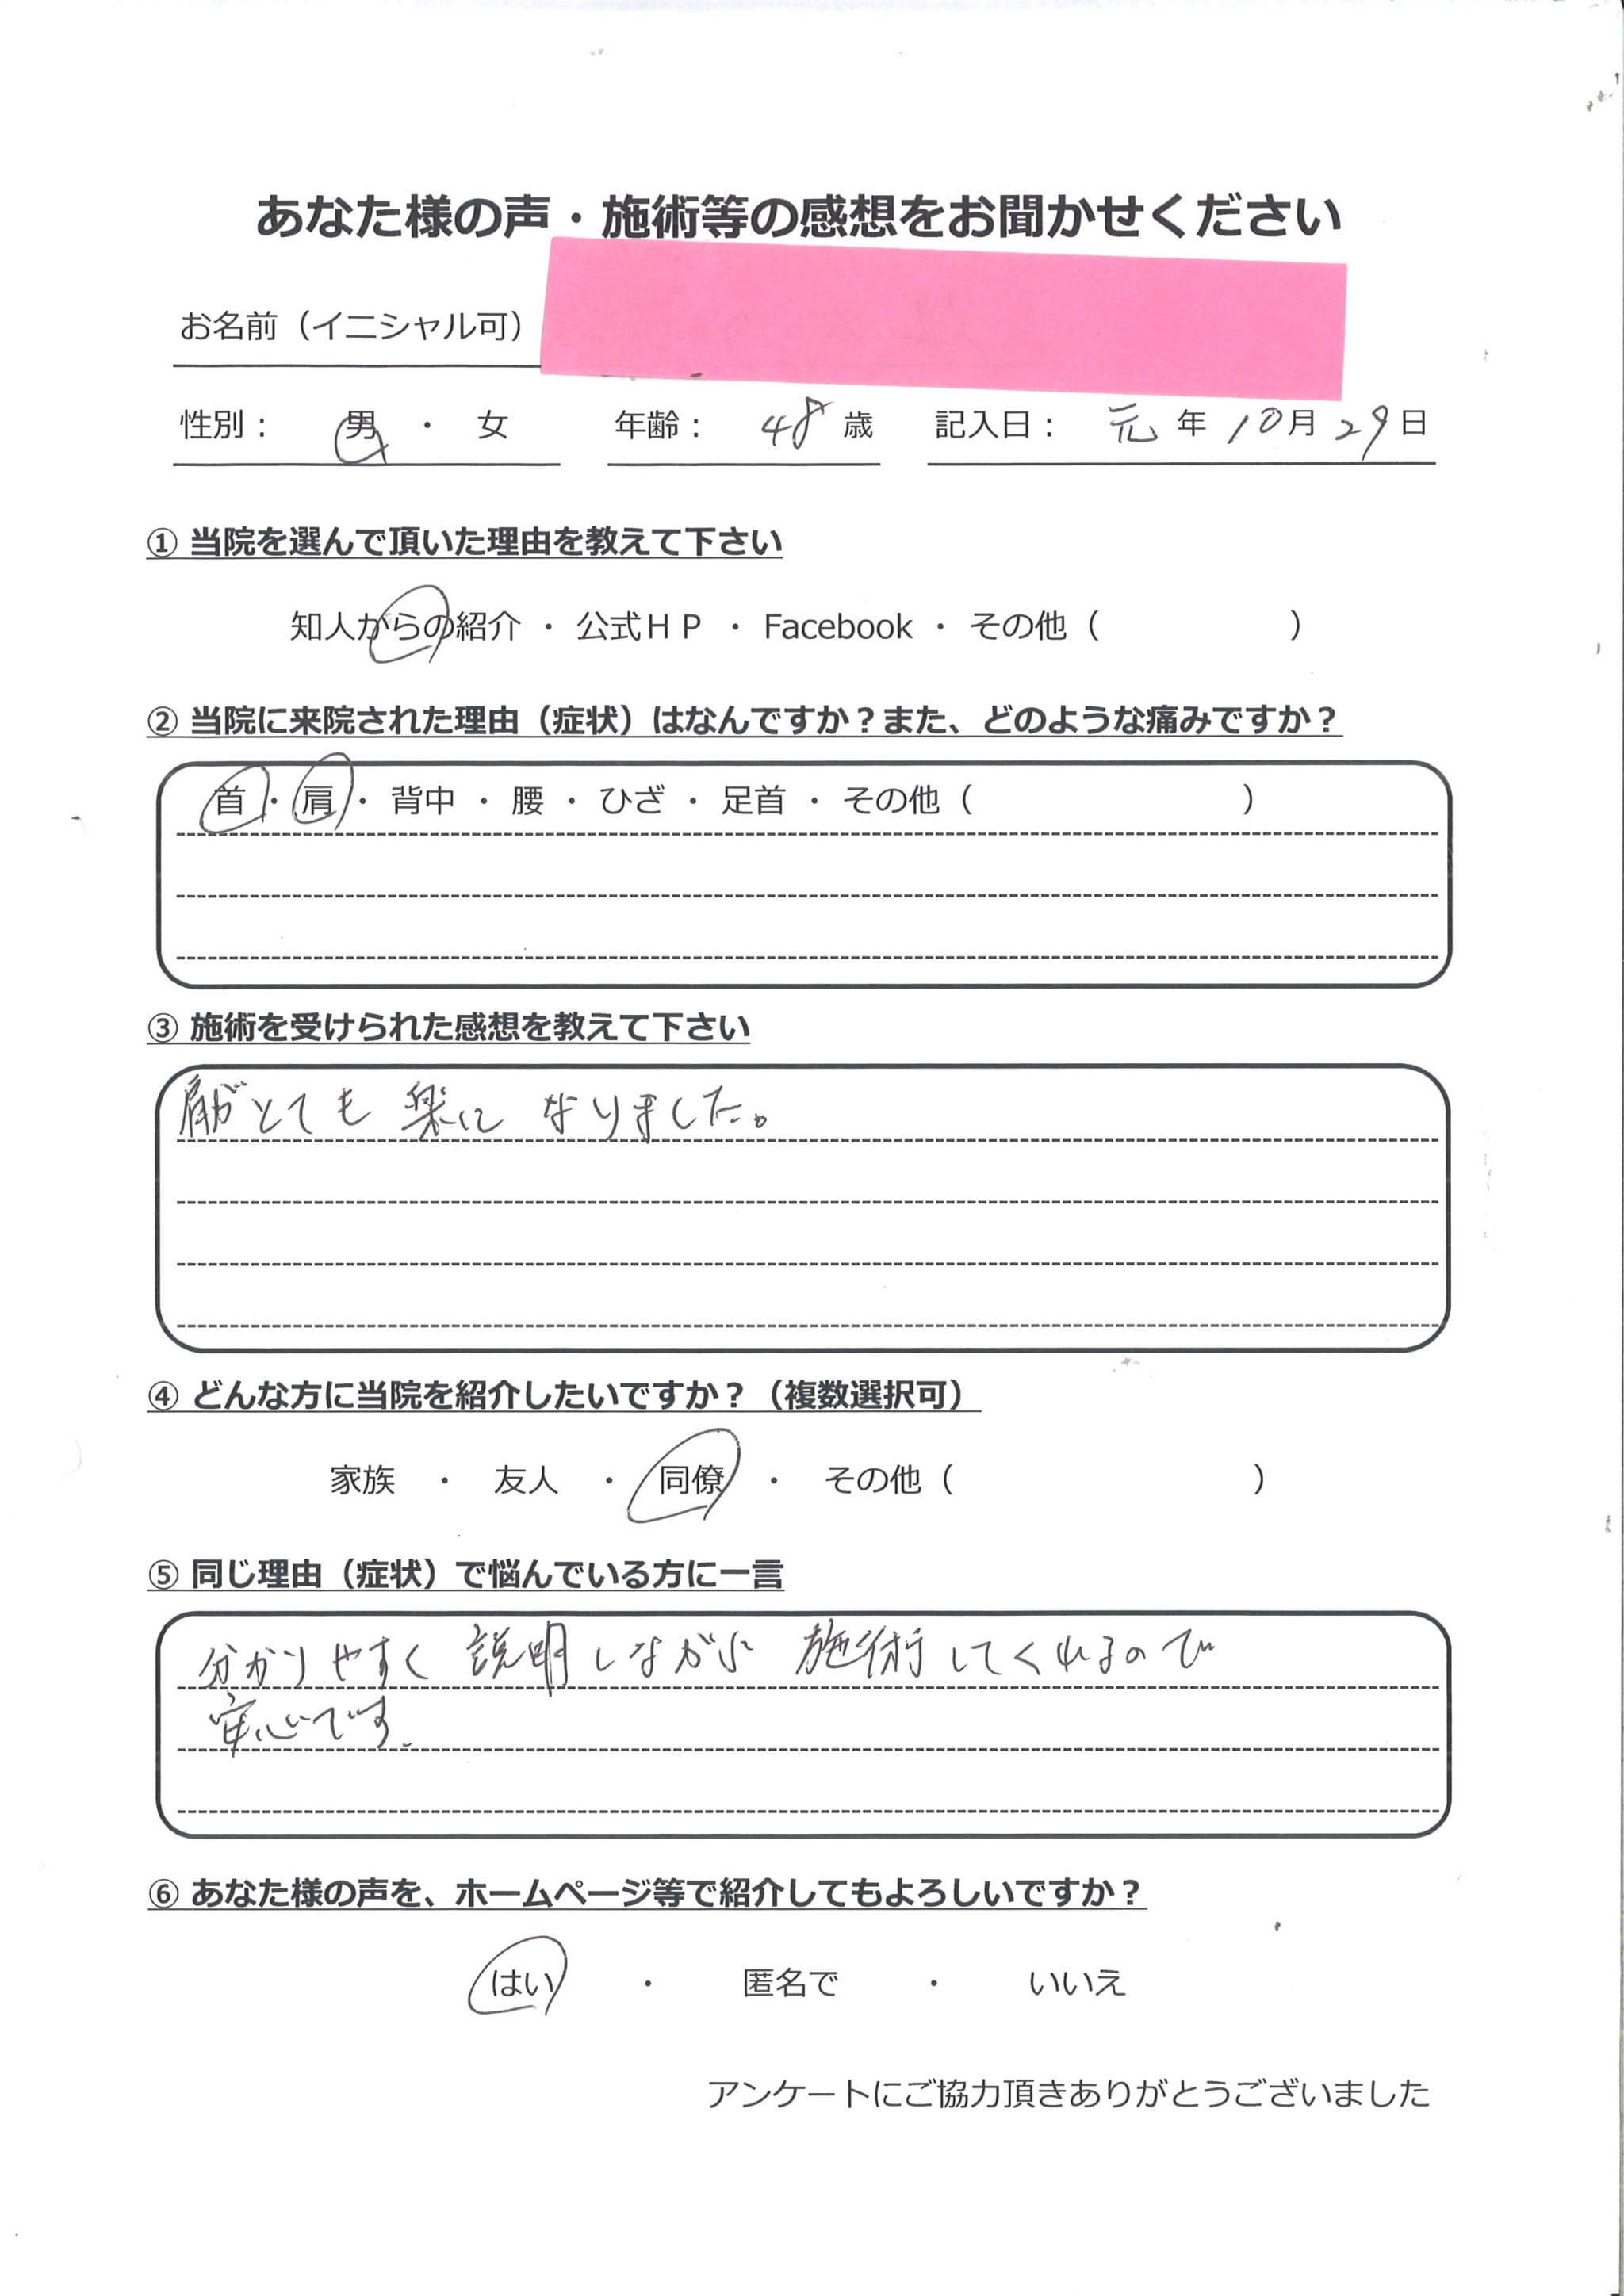 あなた様の声・施術等の感想をお聞かせください
お名前（イニシャル可）
性別： 男 ・ 女 年齢： 48 歳 記入日： 元 年 10 月 29 日
① 当院を選んで頂いた理由を教えて下さい
知人からの紹介 ・ 公式ＨＰ ・ Facebook ・ その他（ ）
② 当院に来院された理由（症状）はなんですか？また、どのような痛みですか？
首 ・ 肩 ・ 背中 ・ 腰 ・ ひざ ・ 足首 ・ その他（ ）
③ 施術を受けられた感想を教えて下さい
肩がとても 楽に なりました。
④ どんな方に当院を紹介したいですか？（複数選択可）
家族 ・ 友人 ・ 同僚 ・ その他（ ）
⑤ 同じ理由（症状）で悩んでいる方に一言
分かりやすく 説明しながら 施術してくれるので
安心です.
⑥ あなた様の声を、ホームページ等で紹介してもよろしいですか？
はい ・ 匿名で ・ いいえ
アンケートにご協力頂きありがとうございました